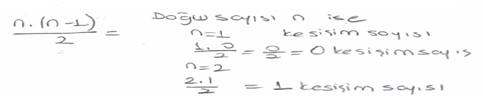 n.(n-1)/2 = Doğru sayısı n ise
n=1 kesişim sayısı
1.0/2 = 0/2 = 0 kesişim sayıs
n=2
2.1/2 = 1 kesişim sayısı